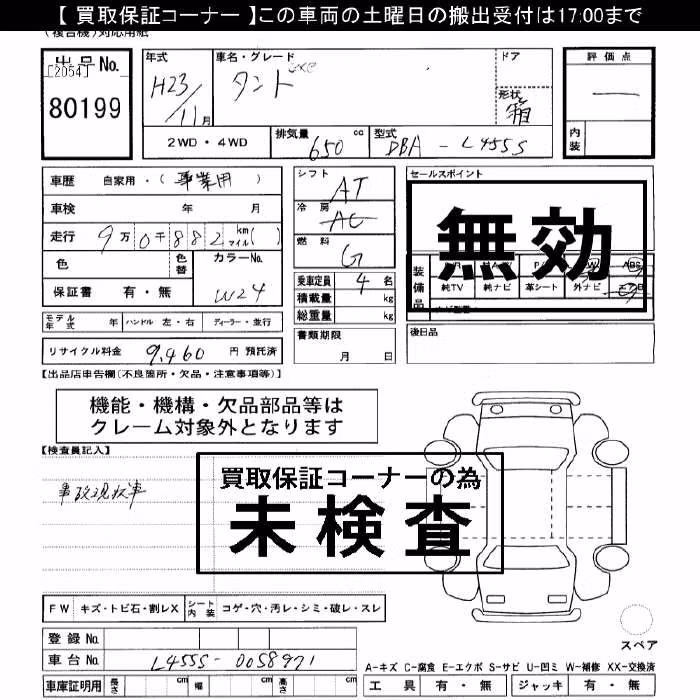 【 買取保証コーナー 】この車両の土曜日の搬出受付は17:00まで
(複合機)対応用紙
出品No.
[2054]
80199
年式
H23/11月
車名・グレード
タント exe
ドア
形状
箱
評価点
—
内装
2WD・4WD
排気量
650 cc
型式
DBA - L455S
車歴 自家用・(事業用)
車検 年 月
走行 9万0千882 kmマイル( )
色
色替
カラーNo.
W24
保証書 有・無
シフト
AT
冷房
AC
燃料
G
乗車定員 4名
積載量 kg
総重量 kg
書類期限
月 日
セールスポイント
無効
装備品
純TV 純ナビ 革シート 外ナビ
ABS
後日品
モデル年式 年 ハンドル 左・右 ディーラー・並行
リサイクル料金 9,460 円 預託済
【出品店申告欄(不良箇所・欠品・注意事項等)】
機能・機構・欠品部品等は
クレーム対象外となります
【検査員記入】
事故現状車
買取保証コーナーの為
未検査
FW キズ・トビ石・割レX シート内装 コゲ・穴・汚レ・シミ・破レ・スレ
スペア
登録No.
車台No. L455S-0058971
車庫証明用 長さ cm 幅 cm 高さ cm
A-キズ C-腐食 E-エクボ S-サビ U-凹ミ W-補修 XX-交換済
工具 有・無 ジャッキ 有・無